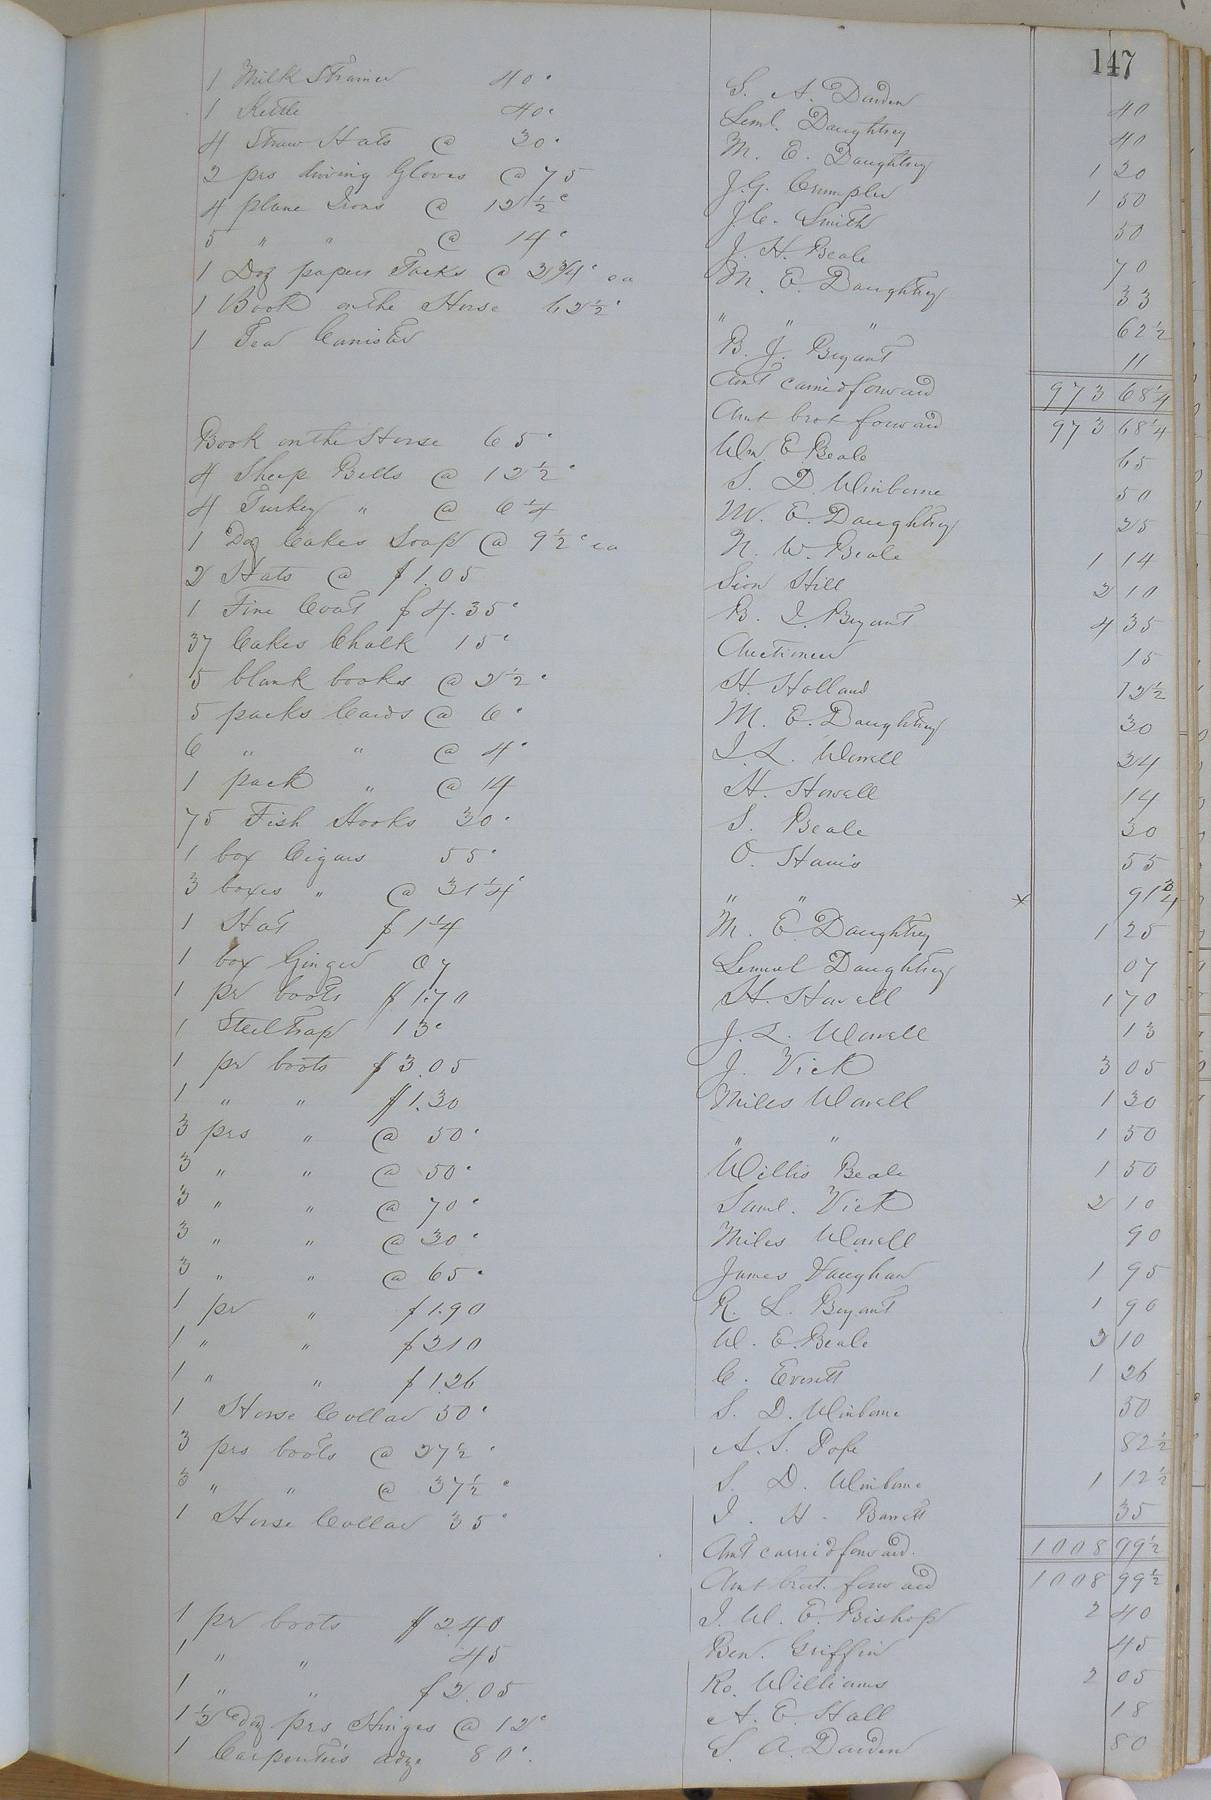 147
1 Milk Strainer 40c S. A. Darden 40
1 Kettle 40c Leml. Daughtrey 40
4 Straw Hats @ 30c M. E. Daughtrey 1 20
2 prs driving Gloves @ 75 J. G. Crumpler 1 50
4 plane Irons @ 12½c J. C. Smith 50
5 " " @ 14c J. H. Beale 70
1 Doz papers Tacks @ 2¾c ea M. E. Daughtrey 33
1 Book on the Horse 62½c " " " 62½
1 Tea Canister B. J. Bryant 11
Amt carried forward 973 68¼
Amt brot forward 973 68¼
Book on the Horse 65c Wm E Beale 65
4 Sheep Bells @ 12½c S. D. Winborne 50
4 Turkey " @ 6¼ M. E. Daughtrey 25
1 Doz Cakes Soap @ 9½c ea N. W. Beale 1 14
2 Hats @ $1.05 Sion Hill 2 10
1 Fine Coat $4.35c B. J. Bryant 4 35
37 Cakes Chalk 15c Auctioneer 15
5 blank books @ 2½c H. Holland 12½
5 packs Cards @ 6c M. E. Daughtrey 30
6 " " @ 4c J. L. Worrell 24
1 pack " @ 14 H. Howell 14
75 Fish Hooks 30c S. Beale 30
1 box Cigars 55c O. Harris 55
3 boxes " @ 31¼c " " x 91¾
1 Hat $1¼ M. E. Daughtrey 1 25
1 box Ginger 07 Lemuel Daughtrey 07
1 pr boots $1.70 H. Howell 1 70
1 Steel Trap 13c J. L. Worrell 13
1 pr boots $3.05 J. Vick 3 05
1 " " $1.30 Miles Worrell 1 30
3 prs " @ 50c " " 1 50
3 " " @ 50c Willis Beale 1 50
3 " " @ 70c Saml. Vick 2 10
3 " " @ 30c Miles Worrell 90
3 " " @ 65c James Vaughan 1 95
1 pr " $1.90 R. L. Bryant 1 90
1 " " $2 10 W. E. Beale 2 10
1 " " $1.26 C. Everett 1 26
1 Horse Collar 50c S. D. Winborne 50
3 prs boots @ 27½c A. S. Pope 82½
3 " " @ 37½c S. D. Winborne 1 12½
1 Horse Collar 35c J. H. Barrett 35
Amt carried forward. 1008 99½
Amt brot. forward 1008 99½
1 pr boots $2.40 J. W. E. Bishop 2 40
1 " " 45 Ben. Griffin 45
1 " " $2.05 Ro. Williams 2 05
1½ Doz prs Hinges @ 12c A. E. Hall 18
1 Carpenter's adze 80c. S. A. Darden 80